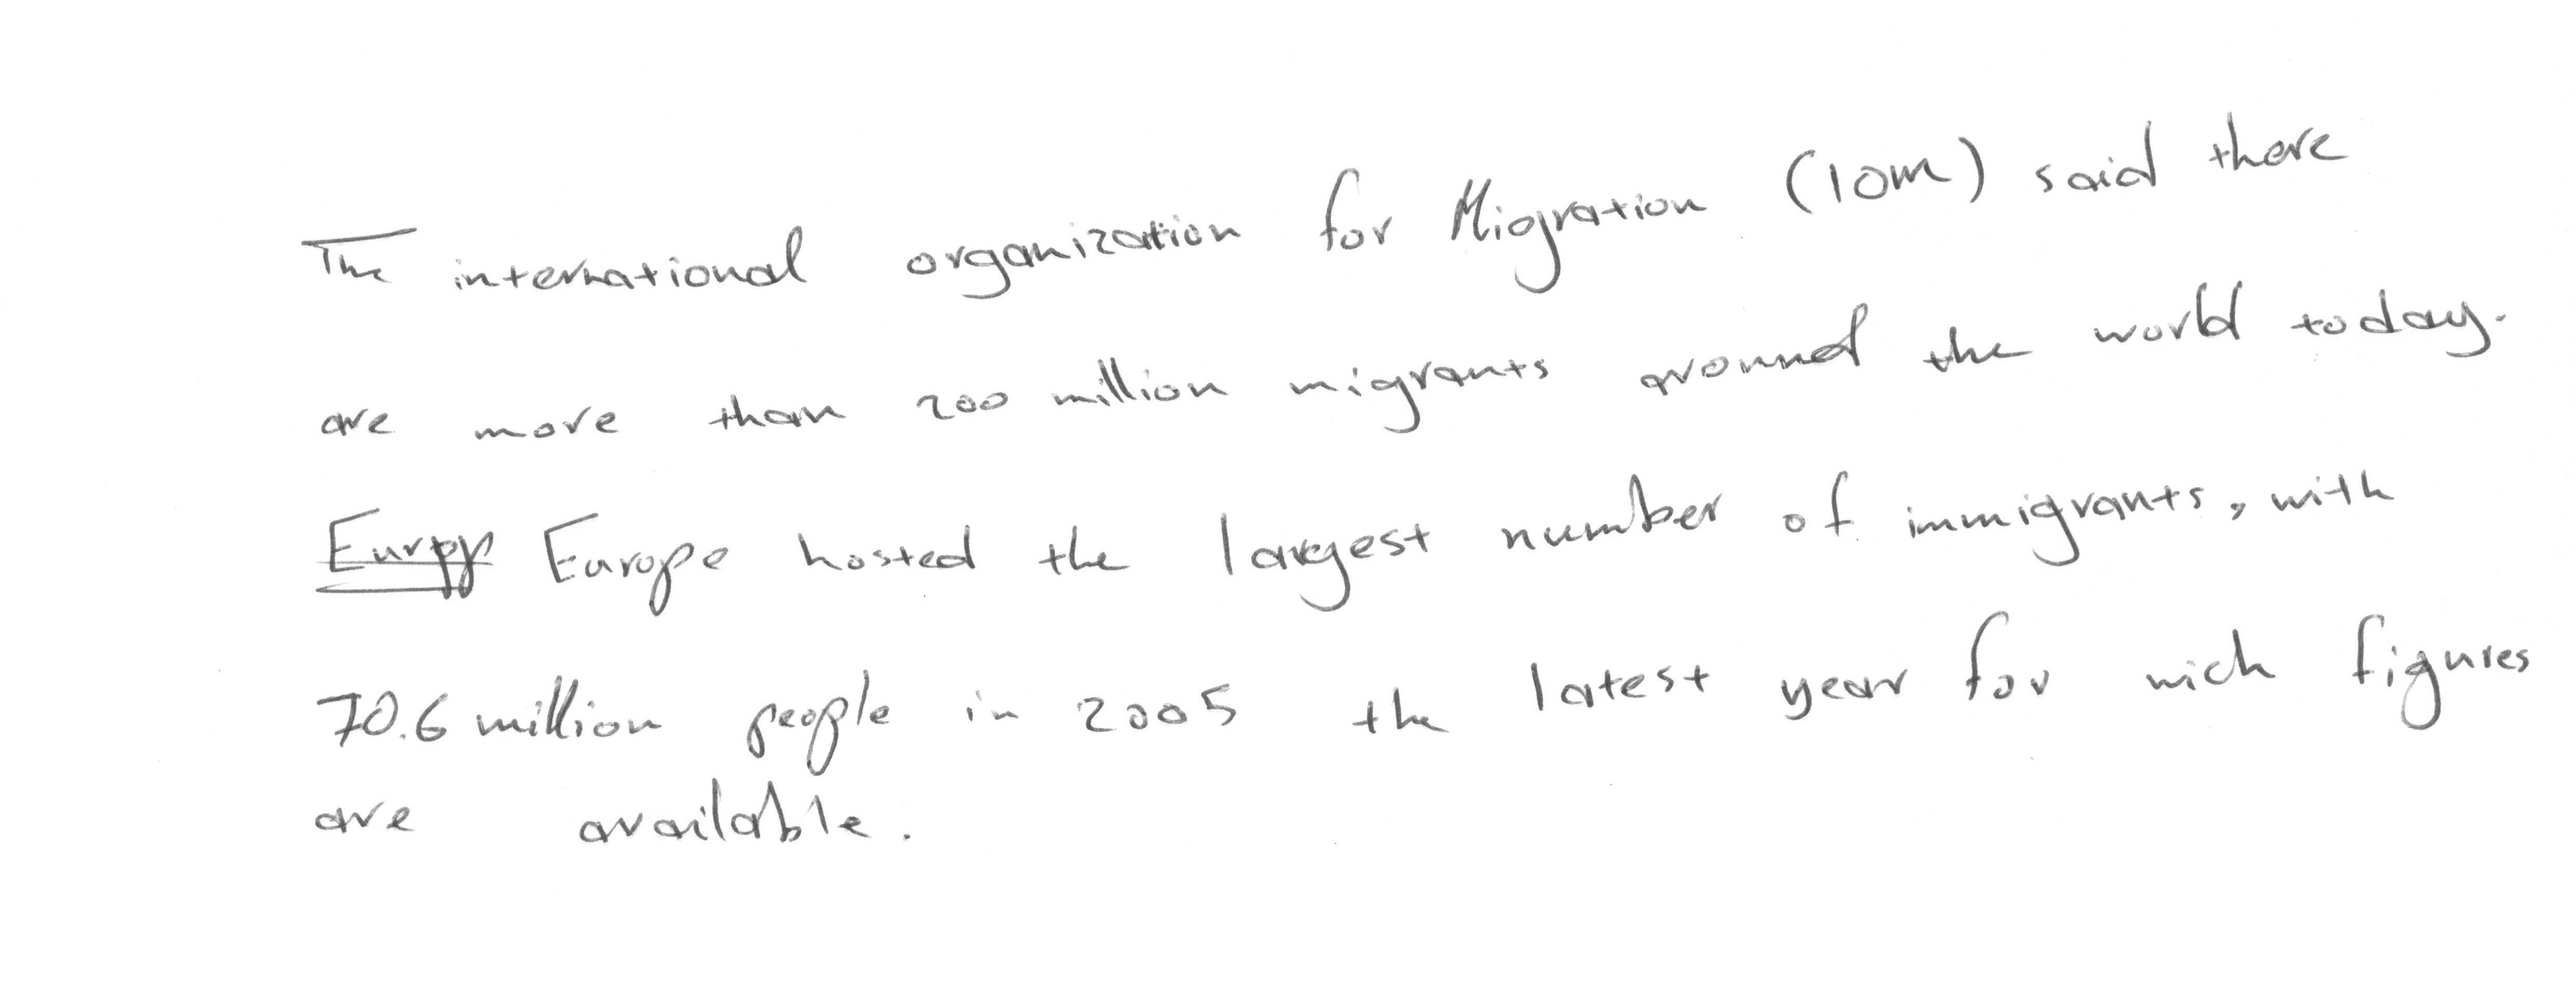 The international organization for Migration (IOM) said there
are more than 200 million migrants around the world today.
Europ Europe hosted the largest number of immigrants, with
70.6 million people in 2005 the latest year for wich figures
are available.